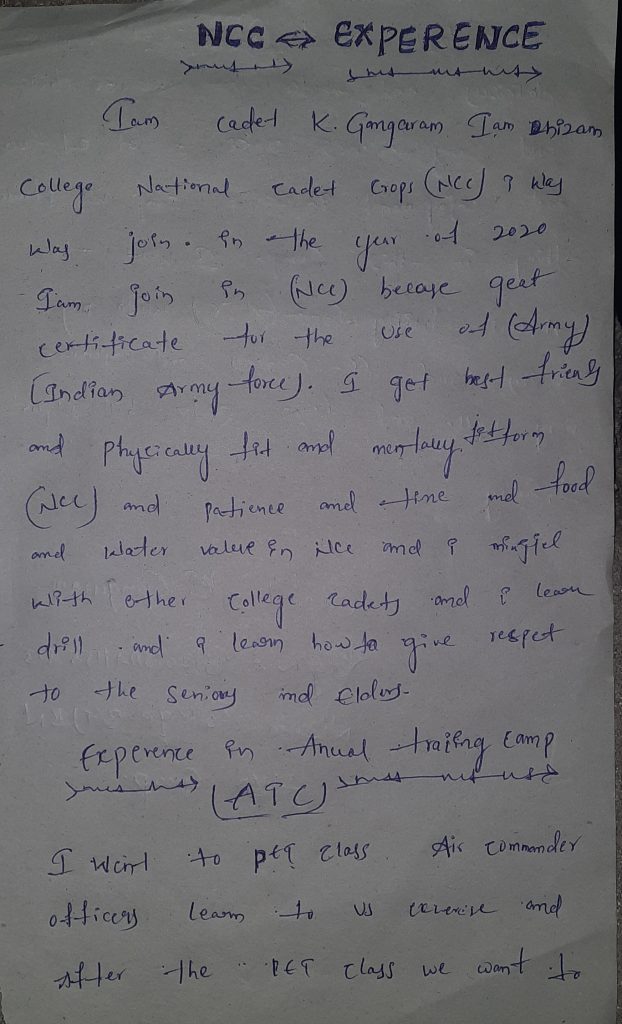 NCC ⇔ EXPERENCE
Iam cadet K. Gangaram Iam
College National cadet Crops (NCC) i was
was join. in the year of 2020
Iam join in (NCC) becase geat
certificate for the use of (Army)
(Indian Army force). I get best friends
and phycicaley fit and mentaley fit form
(NCC) and patience and time and food
and water value in Ncc and i
with other College cadets and i learn
drill and i learn how to give respet
to the seniors and Elders.
Experence in Anual traiing camp
(ATC)
I want to class Air commander
officers learn to us exercise and
after the class we want to